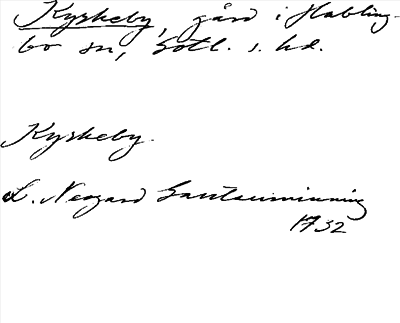 Kyrkeby, gård i Habling-
bo sn, Gotl. s. hd.
Kyrkeby.
L. Neogard Gautauminning
1732